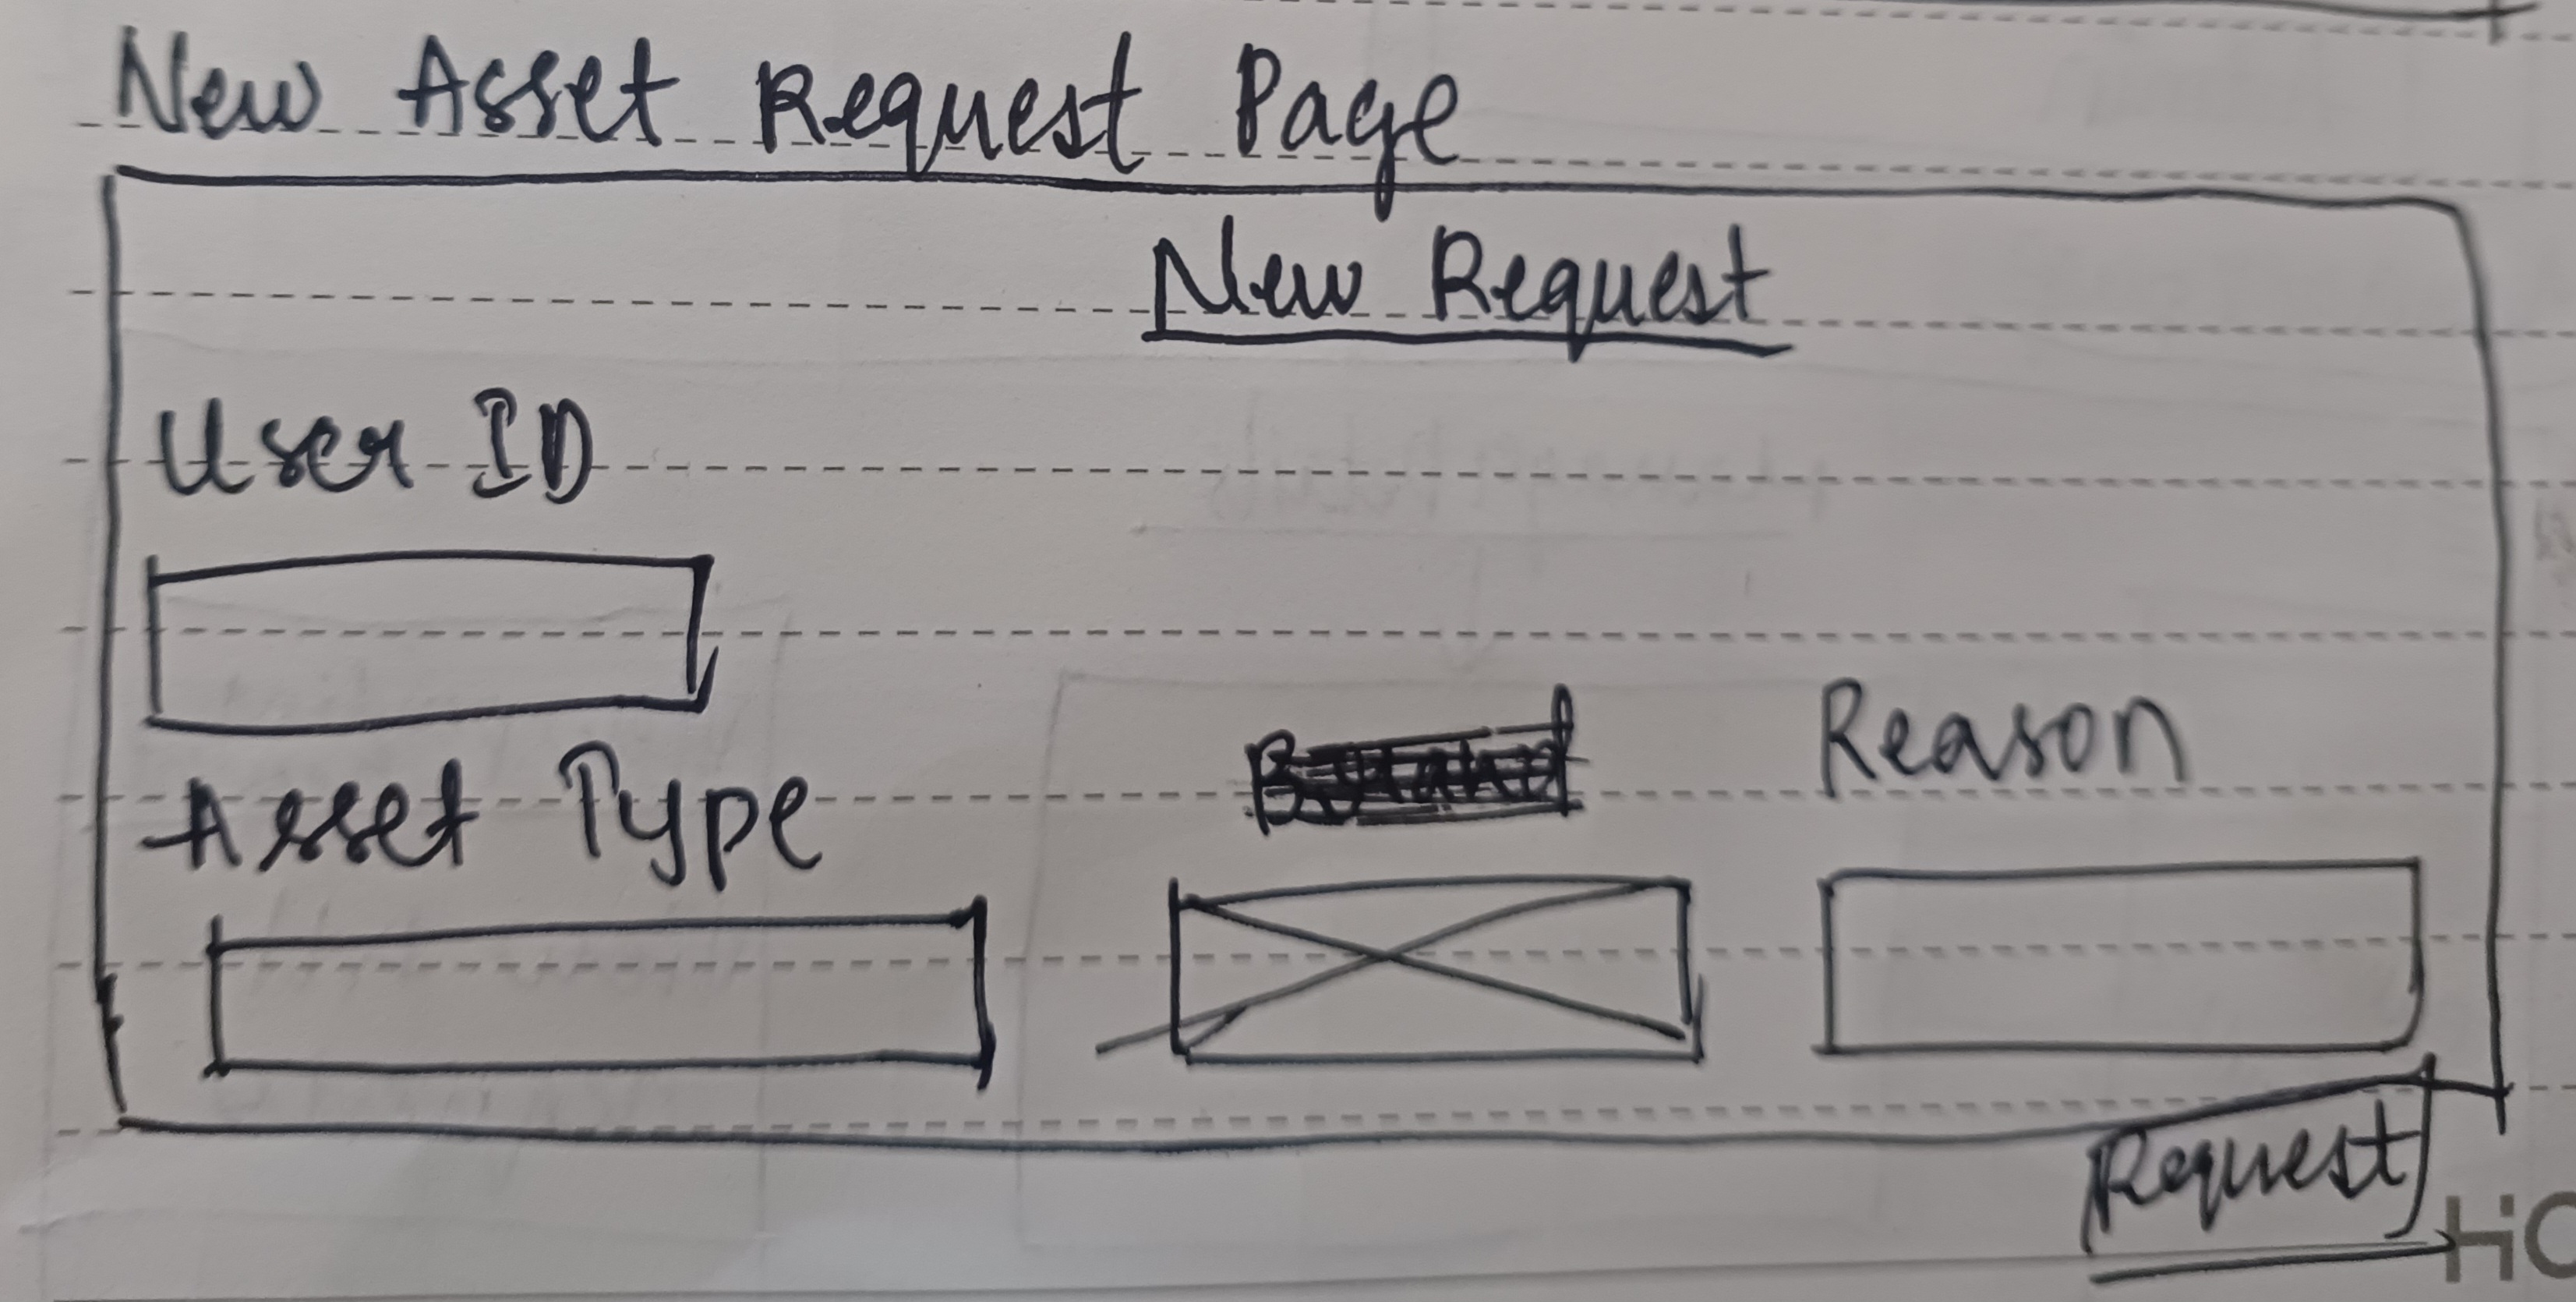 New Asset Request Page
New Request
User ID
Asset Type
Reason
Request